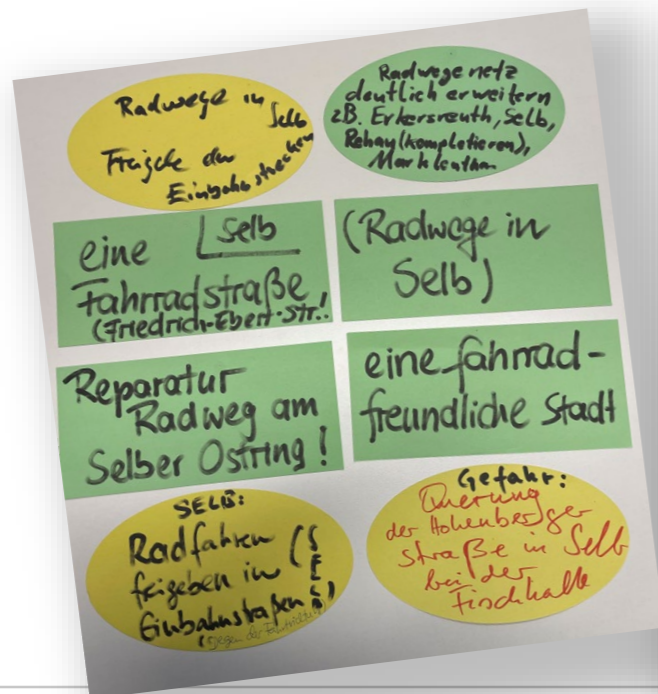 Radwege in
Selb
Freigabe der
Einbahnstrecken
Radwegenetz
deutlich erweitern
z.B. Erkersreuth, Selb,
Rehau (kompletieren),
Marktleuthen
eine Selb
Fahrradstraße
(Friedrich-Ebert-Str.!
(Radwege in
Selb)
Reparatur
Radweg am
Selber Ostring!
eine fahrrad-
freundliche Stadt
SELB:
Radfahren (SELB)
freigeben in
Einbahnstraßen
(gegen der Fahrtrichtung)
Gefahr:
Querung
der Hohenberger
straße in Selb
bei der
Fischhalle